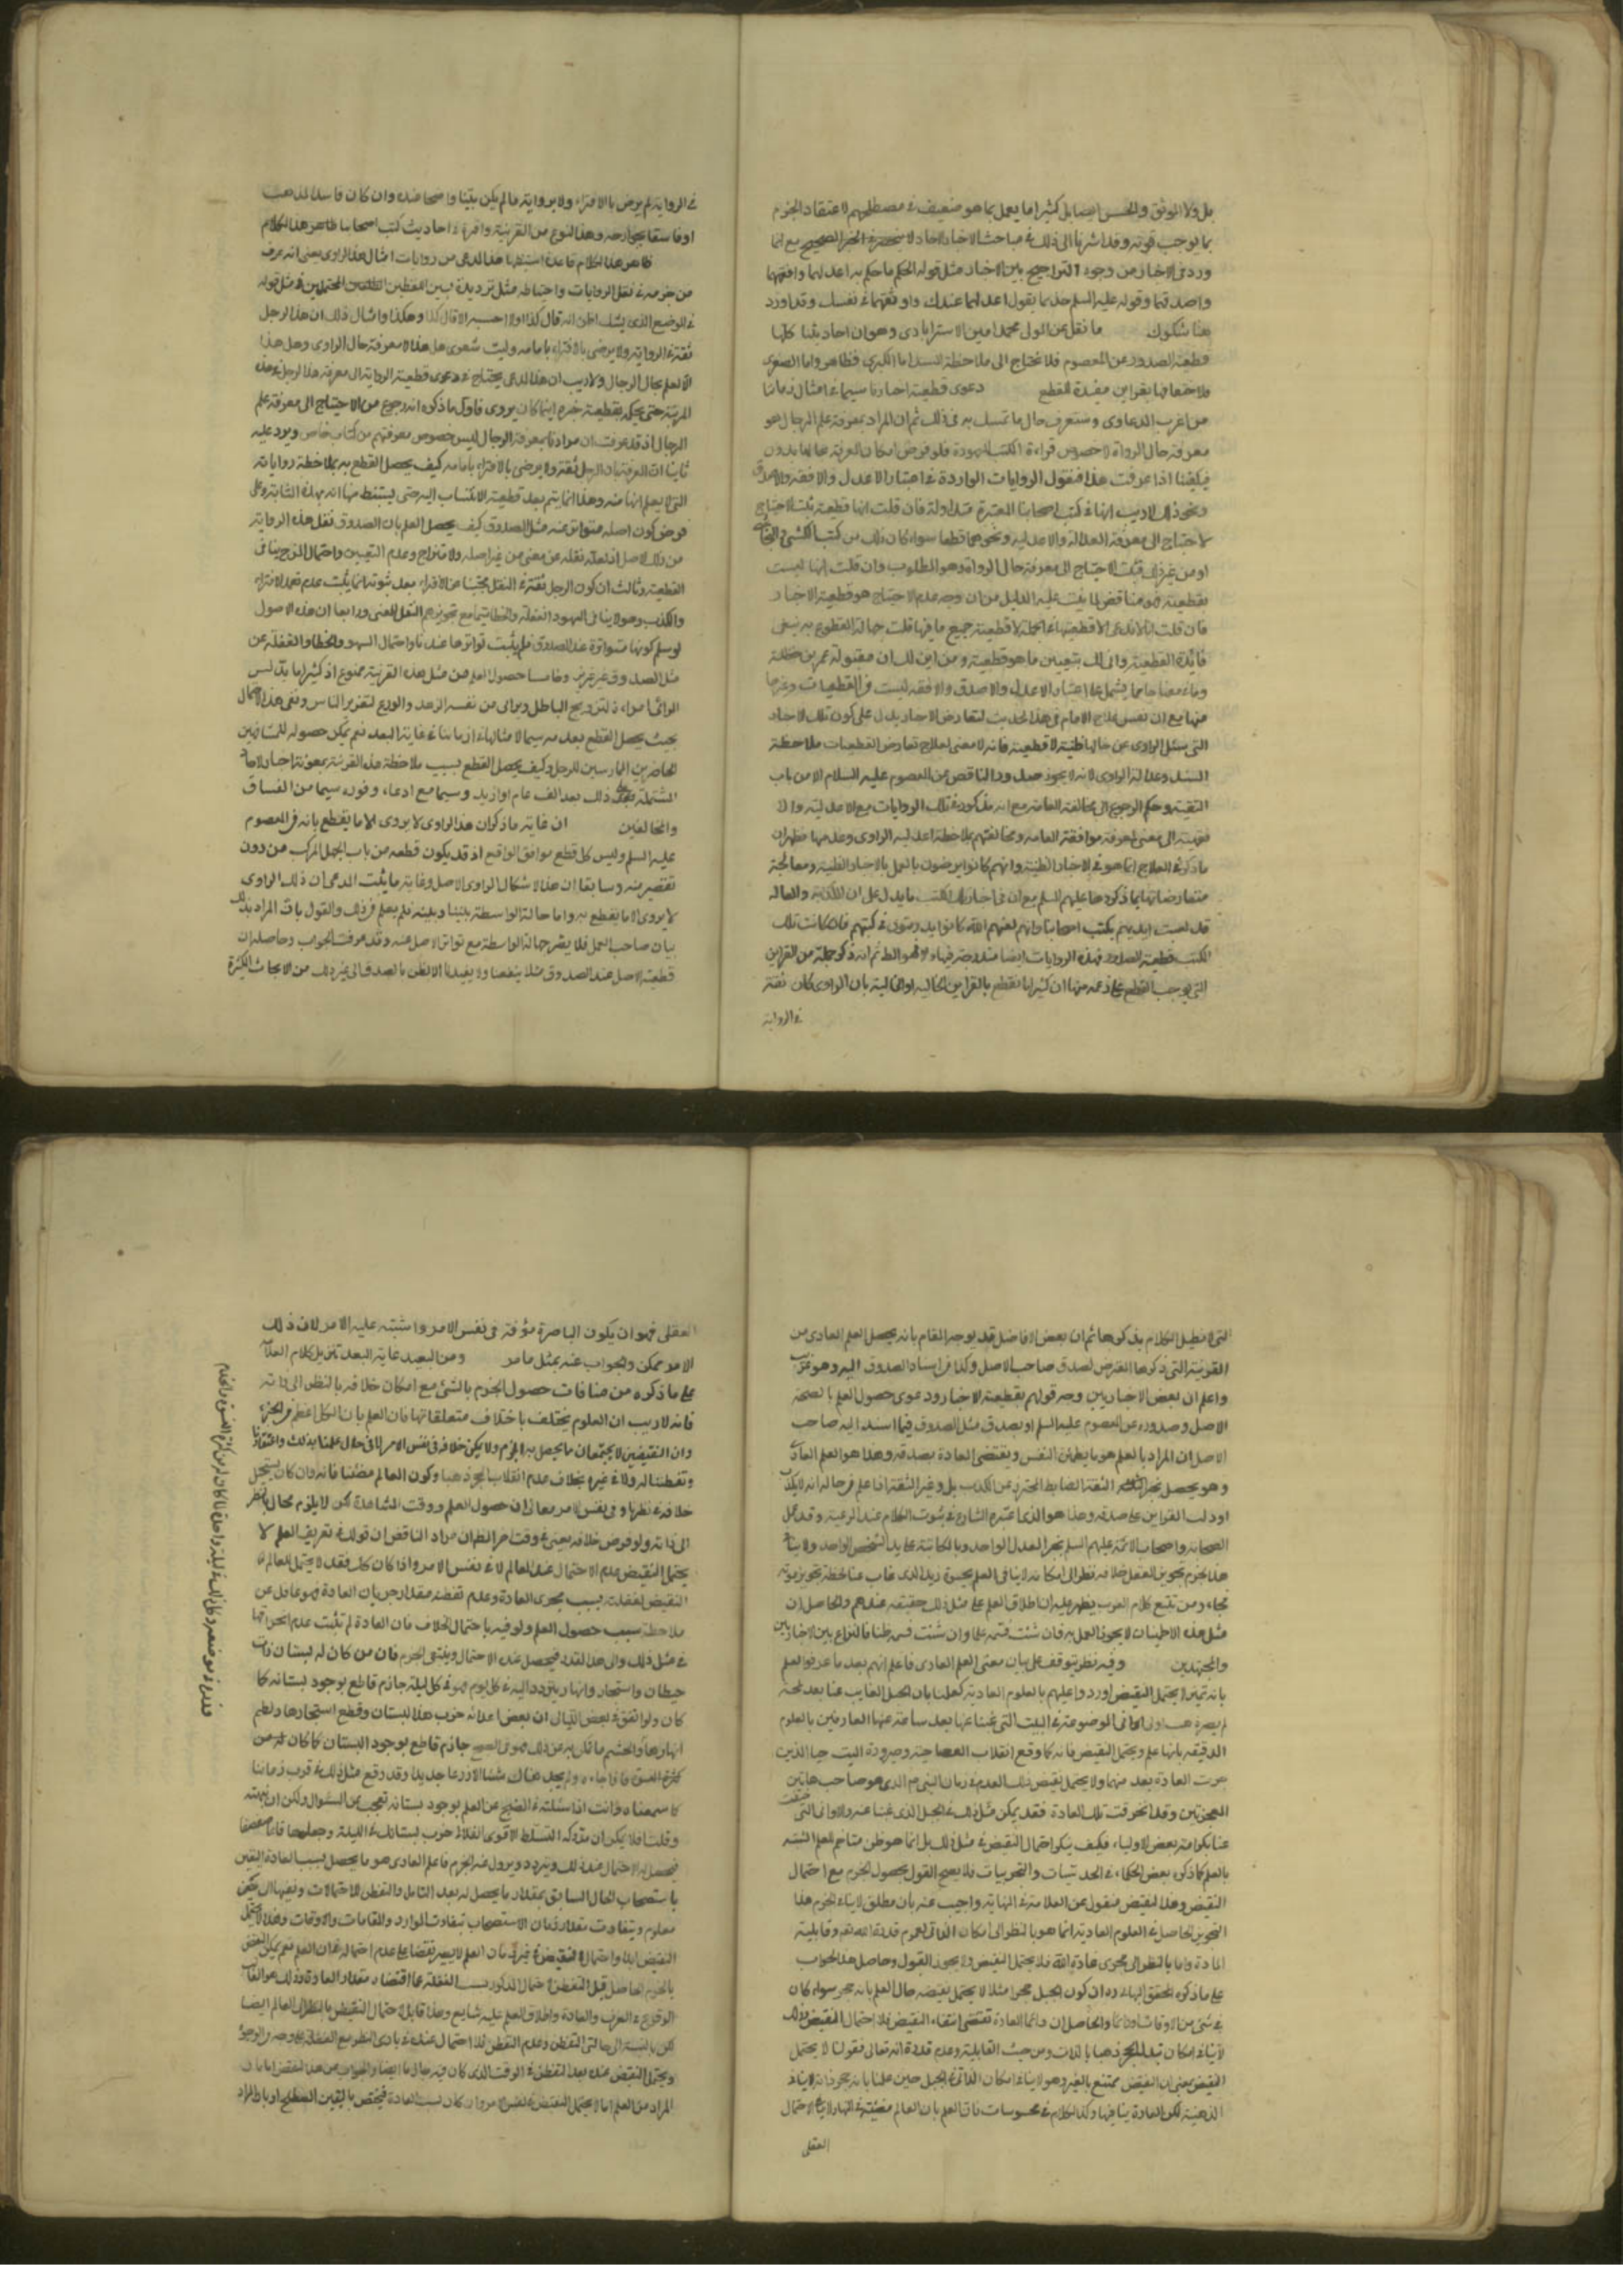 بل ولا الموثق والحسن ايضا بل كثيرا ما يعمل بما هو ضعيف في مصطلحهم لاعتقاد الجزم
بما يوجب قوته وقد اشرنا الى ذلك في مباحث الاخبار الاحاد لا منحصرة في الخبر الصحيح مع انما
ورد في الاخبار من وجوه التراجيح بين الاخبار مثل قوله الحكم ما حكم به اعدلهما وافقههما
واصدقهما وقوله عليه السلم خذ بما يقول اعدلهما عندك واوثقهما في نفسك وقد اورد
هنا شكوك ما نقل عن المولى محمد امين الاسترابادي وهو ان احاديثنا كلها
قطعية الصدور عن المعصوم فلا نحتاج الى ملاحظة السند اما الكبرى فظاهر واما الصغرى
فلاحتفافها بقراين مفيدة للقطع دعوى قطعية اخبارنا سيما في امثال زماننا
من اغرب الدعاوى وستعرف حال ما تمسك به في ذلك ثم ان المراد بمعرفة علم الرجال هو
معرفة حال الرواة لا خصوص قراءة الكتب المعهودة فلو فرض امكان المعرفة بحالها بدون
فيكفينا اذا عرفت هذا فنقول الروايات الواردة في اعتبار الاعدل والافقه والاصدق
ونحو ذلك لا ريب انها في كتب اصحابنا المعتبرة متداولة فان قلت انها قطعية ثبت الاحتياج
لاحتياج الى معرفة العدالة والاعدلية ونحوهما قطعا سواء كان ذلك من كتب الكشي و
او من غيرها فثبت الاحتياج الى معرفة حال الرواة وهو المطلوب وان قلت انها ليست
بقطعية فهو مناقض لما بنيت عليه الدليل من ان وجه عدم الاحتياج هو قطعية الاخبار
فان قلت انا لا ندعي الا قطعيتها في الجملة لا قطعية جميع ما فيها قلت جهالة المقطوع به ينفي
فائدة القطعية وانى لك بتعيين ما هو قطعية ومن اين لك ان مقبولة عمر بن حنظلة
وما في معناها مما يشمل على اعتبار الاعدل والاصدق والافقه ليست من القطعيات وغيرها
منها مع ان نفس علاج الامام في هذا الحديث لتعارض الاخبار يدل على كون تلك الاخبار
التي سئل الراوي عن حالها ظنية لا قطعية فانه لا معنى لعلاج تعارض القطعيات ملاحظة
السند وعدالة الراوي لانه لا يجوز صدور المتناقض عن المعصوم عليه السلام الا من باب
التقية وحكم الرجوع الى مخالفة العامة مع انه مذكور في تلك الروايات مع الاعدلية والا
معنى لمعرفة موافقة العامة ومخالفتهم بملاحظة اعدلية الراوي وعدمها فظهر ان
ما ذكره في العلاج انما هو في الاخبار الظنية وانهم كانوا يرضون بالعمل بالاخبار الظنية ومعالجة
متعارضاتها بما ذكروها عليهم السلم مع ان في اخبار تلك الكتب ما يدل على ان الكذابة والغالة
قد لعبت ايديهم بكتب اصحابنا وانهم لعنهم الله كانوا يدسون في كتبهم فان كانت تلك
الكتب قطعية الصدور فهذه الروايات ايضا مندرجة فيها والا فهو المط ثم انه ذكر جملة من القراين
التي يوجب القطع على زعمه منها ان كثيرا ما نقطع بالقراين الحالية او المقالية بان الراوي كان ثقة
في الرواية
في الرواية لم يرض بالافتراء ولا برواية ما لم يكن بينا واضحا عنده وان كان فاسد المذهب
او فاسقا بجوارحه وهذا النوع من القرينة وافرة في احاديث كتب اصحابنا ظاهر هذا الكلام
ظاهر هذا الكلام قاعدة استنبطها هذا المدعي من روايات امثال هذا الراوي يعني انه عرف
من حزمه في نقل الروايات واحتياطه مثل ترديده بين اللفظين المحتملين في مثل قوله
في الموضع الذي يشك اظن انه قال كذا او لا احسبه الا قال كذا وهكذا وامثال ذلك ان هذا الرجل
ثقة في الرواية ولا يرضى بالافتراء بامامه وليت شعري هل هذا الا معرفة حال الراوي وهل هذا
الا العلم بحال الرجال ولا ريب ان هذا المدعي يحتاج في دعوى قطعية الرواية الى معرفة هذا الرجل بهذه
المرتبة حتى يحكم بقطعية خبره اينما كان يروي فاول ما ذكره انه رجوع من الاحتياج الى معرفة علم
الرجال اذ قد عرفت ان مرادنا بمعرفة الرجال ليس خصوص معرفتهم من كتاب خاص ويرد عليه
ثانيا ان المعرفة بان الرجل ثقة ولا يرضى بالافتراء بامامه كيف يحصل القطع به بملاحظة رواياته
التي لا يعلم انها منه وهذا انما يتم بعد قطعية الانتساب اليه حتى يستنبط منها انه بهذه المثابة وعلى
فرض كون اصله متواترا عند مثل الصدوق كيف يحصل العلم بان الصدوق نقل هذه الرواية
من ذلك الاصل اذ لعله نقله عن معنعن من غير اصله ولا
القطعية وثالثا ان كون الرجل ثقة في النقل مجتنبا عن الافتراء بعد ثبوته انما يثبت عدم تعمد الافتراء
والكذب وهو لا ينافي السهو والغفلة والخطا سيما مع تجويزهم النقل بالمعنى ورابعا ان هذه الاصول
لو سلم كونها متواترة عند الصدوق فلم يثبت تواترها عندنا واحتمال السهو والخطا والغفلة عن
مثل الصدوق غير عزيز وخامسا حصول العلم من مثل هذه القرينة ممنوع اذ كثيرا ما يدلس
لترويج الباطل ويرائي من نفسه الزهد والورع لتغرير الناس ونفي هذا الاحتمال
بحيث يحصل القطع بعدمه سيما لامثالنا في ازماننا في غاية البعد نعم يمكن حصوله للمشافهين
الحاضرين الممارسين للرجل وكيف يحصل القطع بسبب ملاحظة هذه القرينة بمعونة اخبار الاحاد
المشتملة على ذلك بعد الف عام او ازيد وسيما مع ادعاء وفوره سيما من الفساق
والمخالفين ان غاية ما ذكر ان هذا الراوي لا يروي الا ما يقطع بانه من المعصوم
عليه السلم وليس كل قطع موافق الواقع اذ قد يكون قطعه من باب الجهل المركب من دون
تقصير منه وسابعا ان هذا الاشكال الراوي الاصل وغاية ما يثبت المدعى ان ذلك الراوي
لا يروي الا ما يقطع به واما حالة الواسطة بيننا وبينه فلم يعلم من ذلك والقول بان المراد بذلك
بيان صاحب العمل فلا يضر جهالة الواسطة مع تواتر الاصل عنه وقد عرفت الجواب وحاصله ان
قطعية الاصل عند الصدوق مثلا لا ينفعنا ولا يفيدنا الا الظن بالصدق الى غير ذلك من الابحاث الكثيرة
التي لا نطيل الكلام بذكرها ثم ان بعض الافاضل قد يوجه المقام بانه يحصل العلم العادي من
القرينة التي ذكرها المعترض لصدق صاحب الاصل وكذا في اسناد الصدوق اليه وهو غريب
واعلم ان بعض الاخباريين وجه قولهم بقطعية الاخبار ودعوى حصول العلم بالصحة
الاصل وصدوره عن المعصوم عليه السلم او بصدق مثل الصدوق فيما اسند اليه صاحب
الاصل ان المراد بالعلم هو ما يطمئن النفس ويقتضي العادة بصدقه وهذا هو العلم العادي
وهو يحصل بخبر الثقة الضابط المتحرز عن الكذب بل وغير الثقة اذا علم من حاله انه لا يكذب
او دلت القراين على صدقه وهذا هو الذي اعتبره الشارع في ثبوت الاحكام عند الرعية وقد عمل
الصحابة واصحاب الائمة عليهم السلم بخبر العدل الواحد وبالمكاتبة على يد الشخص الواحد ولا ينافي
هذا الجزم تجويز العقل خلافه نظرا الى امكانه كما لا ينافي العلم بحيوة زيد الذي غاب عنا لحظة تجويز موته
فجاة ومن تتبع كلام العرب يظهر عليه ان اطلاق العلم على مثل ذلك حقيقة عندهم والحاصل ان
مثل هذه الاطمينان لا يجوز العمل به فان شئت فسمه علما وان شئت فسمه ظنا فالنزاع بين الاخباريين
والمجتهدين وفيه نظر يتوقف على بيان معنى العلم العادي فاعلم انهم بعد ما عرفوا العلم
بانه تميز لا يحتمل النقيض اورد واعليهم بالعلوم العادية كعلمنا بان الجبل الغايب عنا بعد لحظة
لم يصر ذهبا واواني الموضوعة في البيت التي غبنا عنها بعد ساعة منها العارفين بالعلوم
الدقيقة بانها علم ويحتمل النقيض فانه كما وقع انقلاب العصا حية وصيرورة الميت حيا الذين
جرت العادة بعدمهما ولا يحتمل نقيض تلك العدم في زمان النبي م الذي هو صاحب هاتين
المعجزتين وقد انخرقت تلك العادة فقد يمكن مثل ذلك في الجبل الذي غبنا عنه والاواني التي
عنا بكرامة بعض الاولياء فكيف ينكر احتمال النقيض في مثل ذلك بل انما هو ظن متاخم للعلم اشتبه
بالعلم كما ذكره بعض الحكماء في الحدسيات والتجربيات فلا يصح القول بحصول الجزم مع احتمال
النقيض وهذا النقيض منقول عن العلامة في النهاية واجيب عنه بان مطلق لا ينافي الجزم هذا
التجويز الحاصل في العلوم العادية انما هو بالنظر الى امكان الذاتي لعموم قدرة الله تعه وقابلية
المادة واما بالنظر الى مجرى عادة الله فلا يحتمل النقيض ولا يجوز القول وحاصل هذا الجواب
على ما ذكره المحقق البهائي ره ان كون الجبل حجرا مثلا لا يحتمل نقيضه حال العلم بانه حجر سواء كان
في شئ من الاوقات او دائما والحاصل ان دائما العادة تقتضي انتفاء النقيض فلا احتمال النقيض وذلك
لا ينافي امكان تبدل الحجر ذهبا بالذات ومن حيث القابلية وعدم قدرة الله تعالى فقولنا لا يحتمل
النقيض يعني ان النقيض ممتنع بالغير وهو لا ينافي امكان الذاتي في الجبل حين علمنا بانه حجر
الذهنية لكن العادة ينافيها وكذا الكلام في محسوسات فان العلم بان العالم مضيئة في النهار لا ينافي الاحتمال
العقلي
العقلي فهو ان يكون الباصرة مؤفة في نفس الامر واشتبه عليه الامر لان ذلك
الامر ممكن والجواب عنه بمثل ما مر ومن البعيد غاية البعد تنزيل كلام العلامة
على ما ذكره من منافات حصول الجزم بالشئ مع امكان خلافه بالنظر الى ذاته
فانه لا ريب ان العلوم يختلف باختلاف متعلقاتها فان العلم بان الكل اعظم من الجزء
وان النقيضين لا يجتمعان ما يحصل به الجزم ولا يمكن خلافه في نفس الامر لا في حال علمنا بذلك
وتفطننا له ولا في غيره بخلاف عدم انقلاب الحجر ذهبا وكون العالم مضيئا فانه وان كان يستحيل
خلافه في نظرنا وفي نفس الامر معا في ان حصول العلم ووقت المشاهدة لكن لا يلزم محال بالنظر
الى ذاته ولو فرض خلافه يعني في وقت اخر الظ ان مراد الناقض ان قولك في تعريف العلم لا
يحتمل النقيض عدم الاحتمال عند العالم لا في نفس الامر واذا كان كك فقد لا يحتمل للعالم
النقيض لغفلته بسبب مجرى العادة وعدم تفطنه مقدار جريان العادة فهو غافل عن
ملاحظة سبب حصول العلم ولو فيه باحتمال الخلاف فان العادة لم تثبت عدم انخراقها
في مثل ذلك والى هذا القدر فيحصل عنده الاحتمال وينتفي الجزم فان من كان له بستان ذات
حيطان واشجار وانهار يتردد اليه في كل يوم فهو في كل ليلة جازم قاطع بوجود بستانه كما
كان ولو اتفق في بعض الليالي ان بعض اعدائه خرب هذا البستان وقطع اشجارها
انهارها جازم قاطع بوجود البستان كما كان
ولم يجد هناك شيئا الا زرعا جديدا وقد وقع مثل ذلك في قرب زماننا
كما سمعناه وانت اذا سئلته في الصبح عن العلم بوجود بستانه تعجب من السؤال ولكن ان نبهته
وقلت افلا يمكن ان عدوك المتسلط الاقوى الفلاني خرب بستانك في الليلة وجعلها قاعا صفصفا
فيحصل له الاحتمال عند ذلك ويتردد ويزول عنه الجزم فاعلم العادي هو ما يحصل بسبب العادة اليقين
باستصحاب الحال السابق بمقدار ما يحصل له بعد التامل والتفطن للاحتمالات ونفيها الى حين
معلوم ويتفاوت مقدار زمان الاستصحاب بتفاوت الموارد والمقامات والاوقات وهذا لا يحتمل
النقيض ابدا واحتمال النقيض في غيره فان العلم لا يصير نقضا على عدم احتماله في ان العلم نعم يمكن النقض
بالجزم الحاصل قبل التفطن لاحتمال المذكور بسبب الغفلة عما اقتضاه مقدار العادة وذلك هو الغالب
الوقوع في العرف والعادة واطلاق العلم عليه شايع وهذا قابل لاحتمال النقيض بالنظر الى العالم ايضا
لكن بالنسبة الى حالتي التفطن وعدم التفطن فلا احتمال عنده في بادي النظر مع الغفلة على وجه من الوجوه
ويحتمل النقيض عنده بعد التفطن في الوقت الذي كان فيه جازما ايضا والجواب عن هذا النقض اما بان
المراد من العلم اما لا يحتمل النقيض في نفس الامر وان كان بسبب العادة فيختص باليقين المصطلح او بان المراد